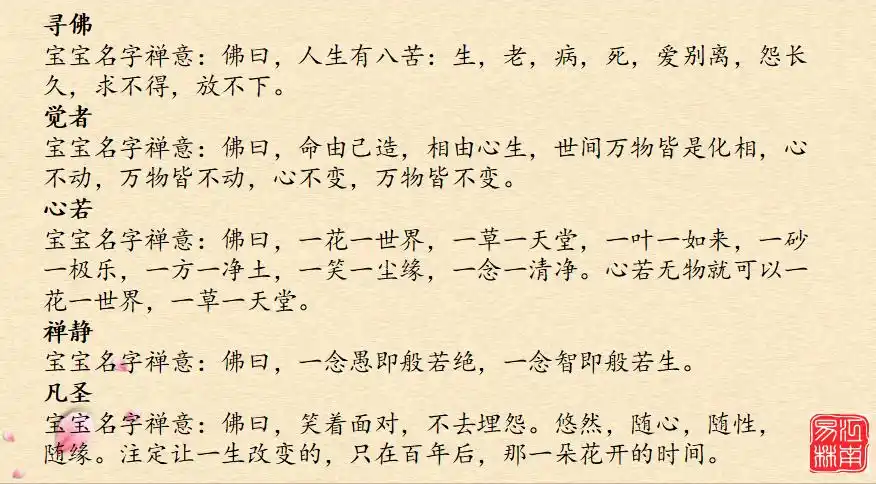 寻佛
宝宝名字禅意：佛曰，人生有八苦：生，老，病，死，爱别离，怨长
久，求不得，放不下。
觉者
宝宝名字禅意：佛曰，命由己造，相由心生，世间万物皆是化相，心
不动，万物皆不动，心不变，万物皆不变。
心若
宝宝名字禅意：佛曰，一花一世界，一草一天堂，一叶一如来，一砂
一极乐，一方一净土，一笑一尘缘，一念一清净。心若无物就可以一
花一世界，一草一天堂。
禅静
宝宝名字禅意：佛曰，一念愚即般若绝，一念智即般若生。
凡圣
宝宝名字禅意：佛曰，笑着面对，不去埋怨。悠然，随心，随性，
随缘。注定让一生改变的，只在百年后，那一朵花开的时间。
江南
易林